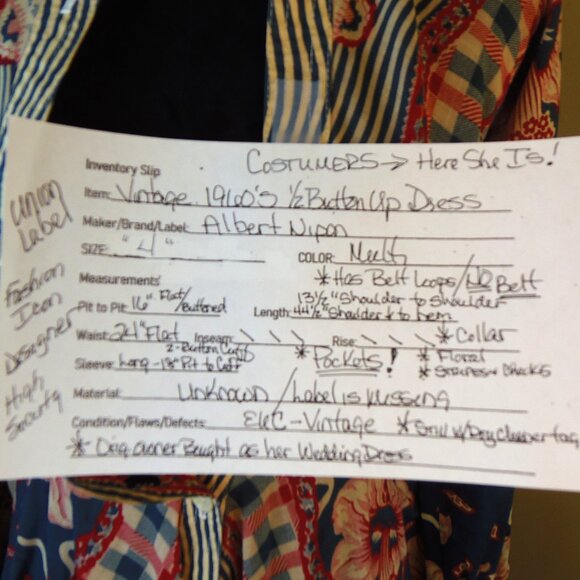 COSTUMERS → Here She Is!
Inventory Slip
Item: Vintage 1960's 1/2 Button Up Dress
Maker/Brand/Label: Albert Nipon
SIZE: "4"
COLOR: Multi
Measurements
* Has Belt Loops/NO Belt
Pit to Pit: 16" Flat/Buttoned
13 1/2" Shoulder to Shoulder
Length: 44 1/2" Shoulder to hem
Waist: 24" Flat Inseam: Rise: * Collar
2-Button Cuff
Sleeve: Long - 18" Pit to Cuff
* Pockets!
* Floral
* Stripes & Checks
Material: Unknown/Label is Missing
Condition/Flaws/Defects: EUC-Vintage * Still w/Dry Cleaner tag
* Orig owner Bought as her Wedding Dress
Union
Label
Fashion
Icon
Designer
High